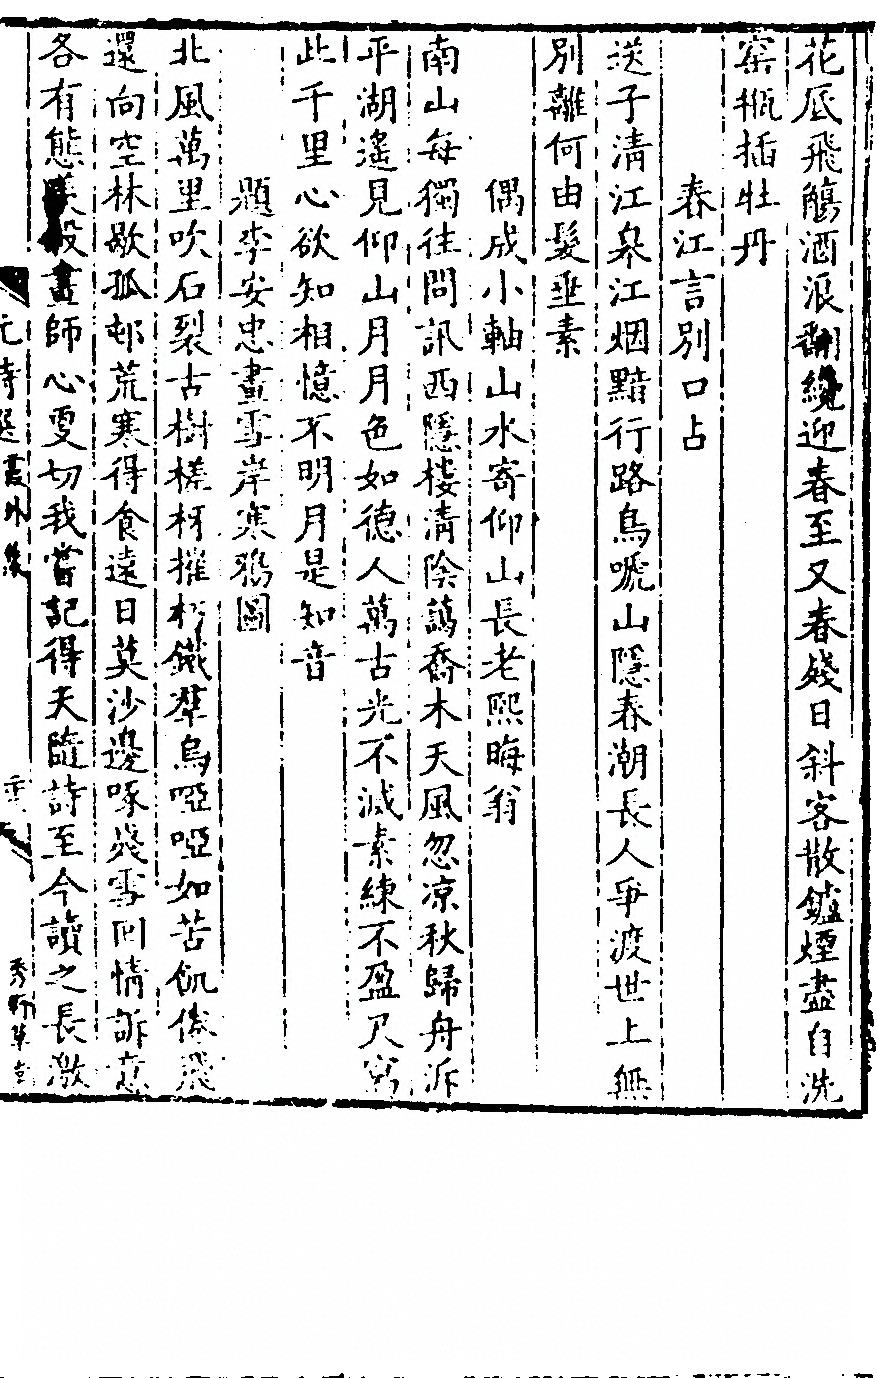 花底飛觴酒浪翻纔迎春至又春殘日斜客散鑪煙盡自洗
窑瓶插牡丹
春江言別口占
送子清江皋江烟黯行路鳥嗁山隱春潮長人爭渡世上無
別離何由髮垂素
偶成小軸山水寄仰山長老熙晦翁
南山每獨往問訊西隱棲清陰藹喬木天風忽凉秋歸舟泝
平湖遙見仰山月月色如德人萬古光不滅素練不盈尺寫
此千里心欲知相憶不明月是知音
題李安忠畫雪岸寒鴉圖
北風萬里吹石裂古樹槎枒摧朽鐵羣烏啞啞如苦飢俟飛
還向空林歇孤邨荒寒得食遠日莫沙邊啄殘雪回情訴意
各有態般畫師心更切我嘗記得天隨詩至今讀之長激
元詩選 外集
秀野草堂